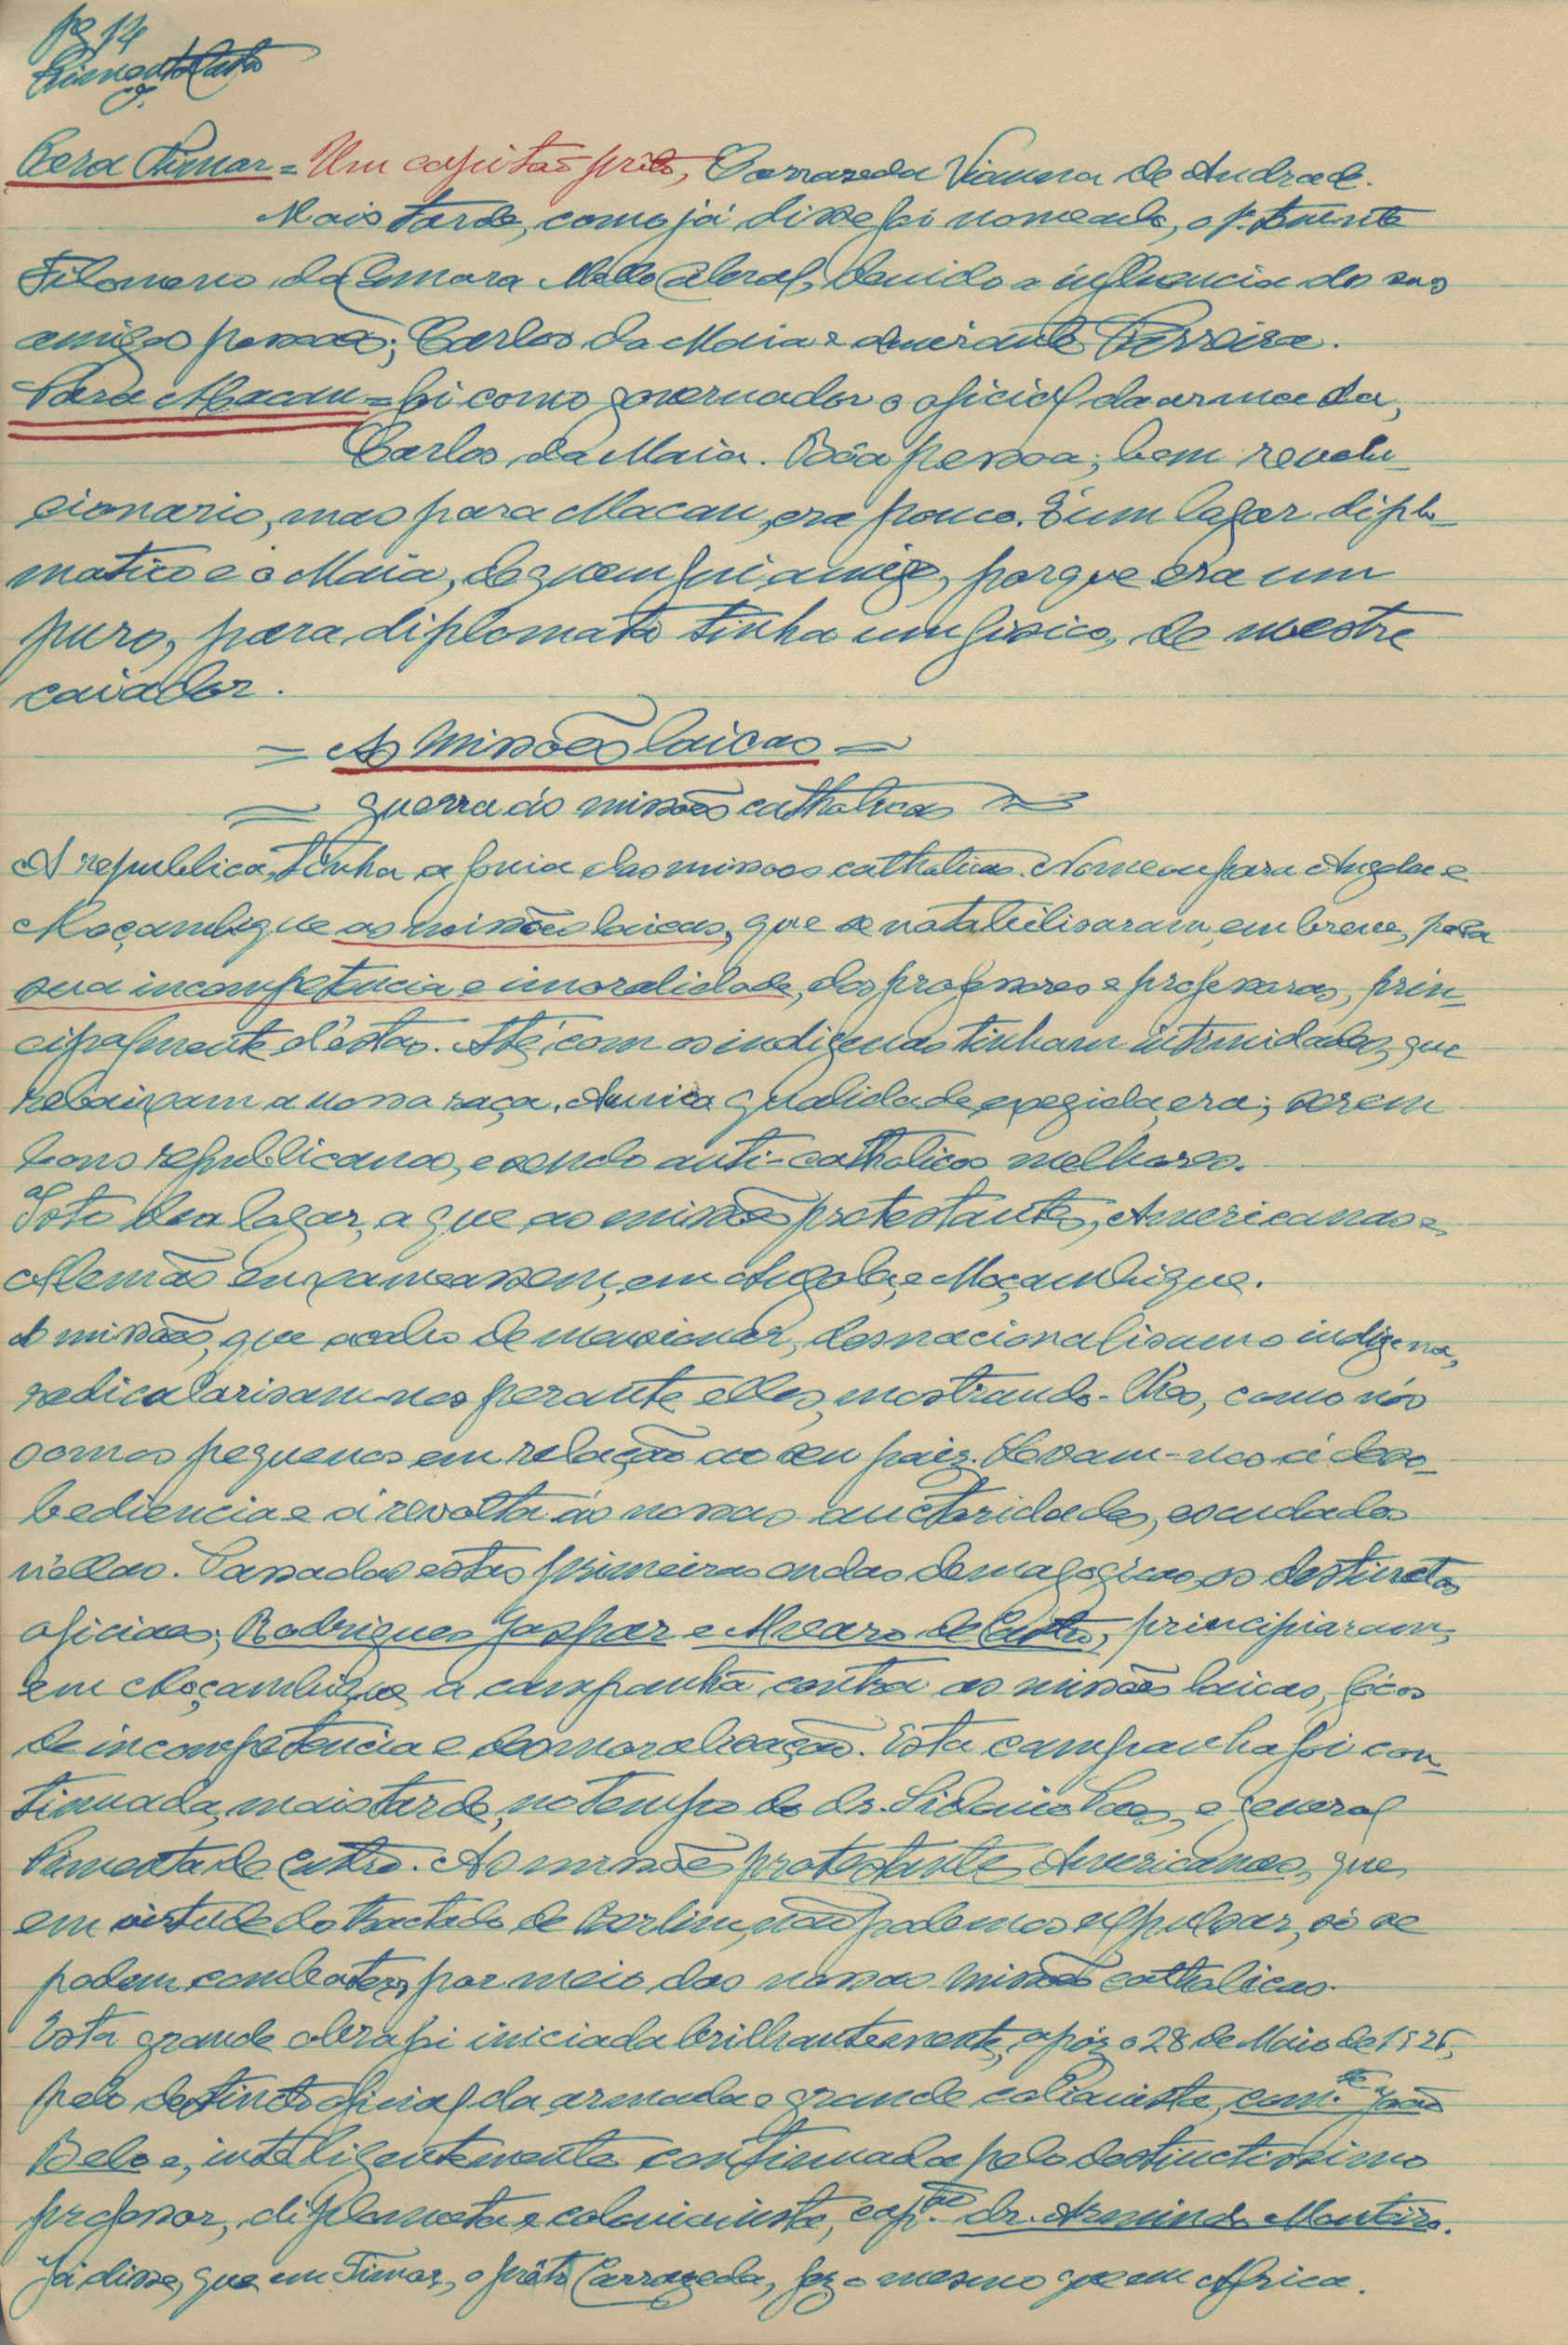 pg 14
Pimenta de Castro
Para Timor = Um capitão prêto, Carrazeda Vianna de Andrade.
Mais tarde, como já disse foi nomeado, o 1º tenente
Filomeno da Camara Mello Cabral, devido a influencia do seus
amigos pessoaes; Carlos da Maia e almirante Ferreira.
Para Macau = foi como governador o oficial da armada,
Carlos da Maia. Bôa pessoa; bom revolu-
cionario, mas para Macau, era pouco. É um logar diplo-
matico e o Maia, de quem fui amigo, porque era um
puro, para diplomata tinha um fisico, de mestre
caiador.
= As missões laicas =
= guerra ás missões catholicas =
A republica, tinha a fobia das missoes catholicas. Nomeou para Angola e
Moçambique as missões laicas, que se notabilisaram, em breve, pela
sua incompetencia e imoralidade, dos professores e professoras, prin-
cipalmente d'estas. Até com os indigenas tinham intimidades, que
rebaixam a nossa raça. A unica qualidade exegida, era; serem
bons republicanos, e sendo anti-catholicos melhores.
Isto deu logar, a que as missões protestantes, Americanas e
Alemãs enxameassem, em Angola, e Moçambique.
As missões, que acabo de mencionar, desnacionalisam o indigena,
redicularisam-nos perante elles, mostrando-lhes, como nós
somos pequenos em relação ao seu paiz. Levam-nos á deso-
bediencia e á revolta ás nossas auctoridades, escudados
n'ellas. Passadas estas primeiras ondas demagogicas, os destinctos
oficiaes; Rodrigues Gaspar e Alvaro de Castro, principiaram,
em Moçambique, a campanha contra as missões laicas, fócos
de incompetencia e desmoralisação. Esta campanha foi con-
tinuada, mais tarde, no tempo do dr. Sidonio Paes, e general
Pimenta de Castro. As missões protestantes Americanas, que,
em virtude do tractado de Berlim, não podemos expulsar, só se
podem combater, por meio das nossas missões catholicas.
Esta grande obra foi iniciada brilhantemente, após o 28 de Maio de 1926,
pelo destincto oficial da armada e grande colianista, com.te João
Belo e, inteligentemente continuada pelo destinctissimo
professor, diplomata e coloniainista, cap.ão dr. Armindo Monteiro.
Já disse, que em Timor, o prêto Carrazeda, fez o mesmo que em Africa.